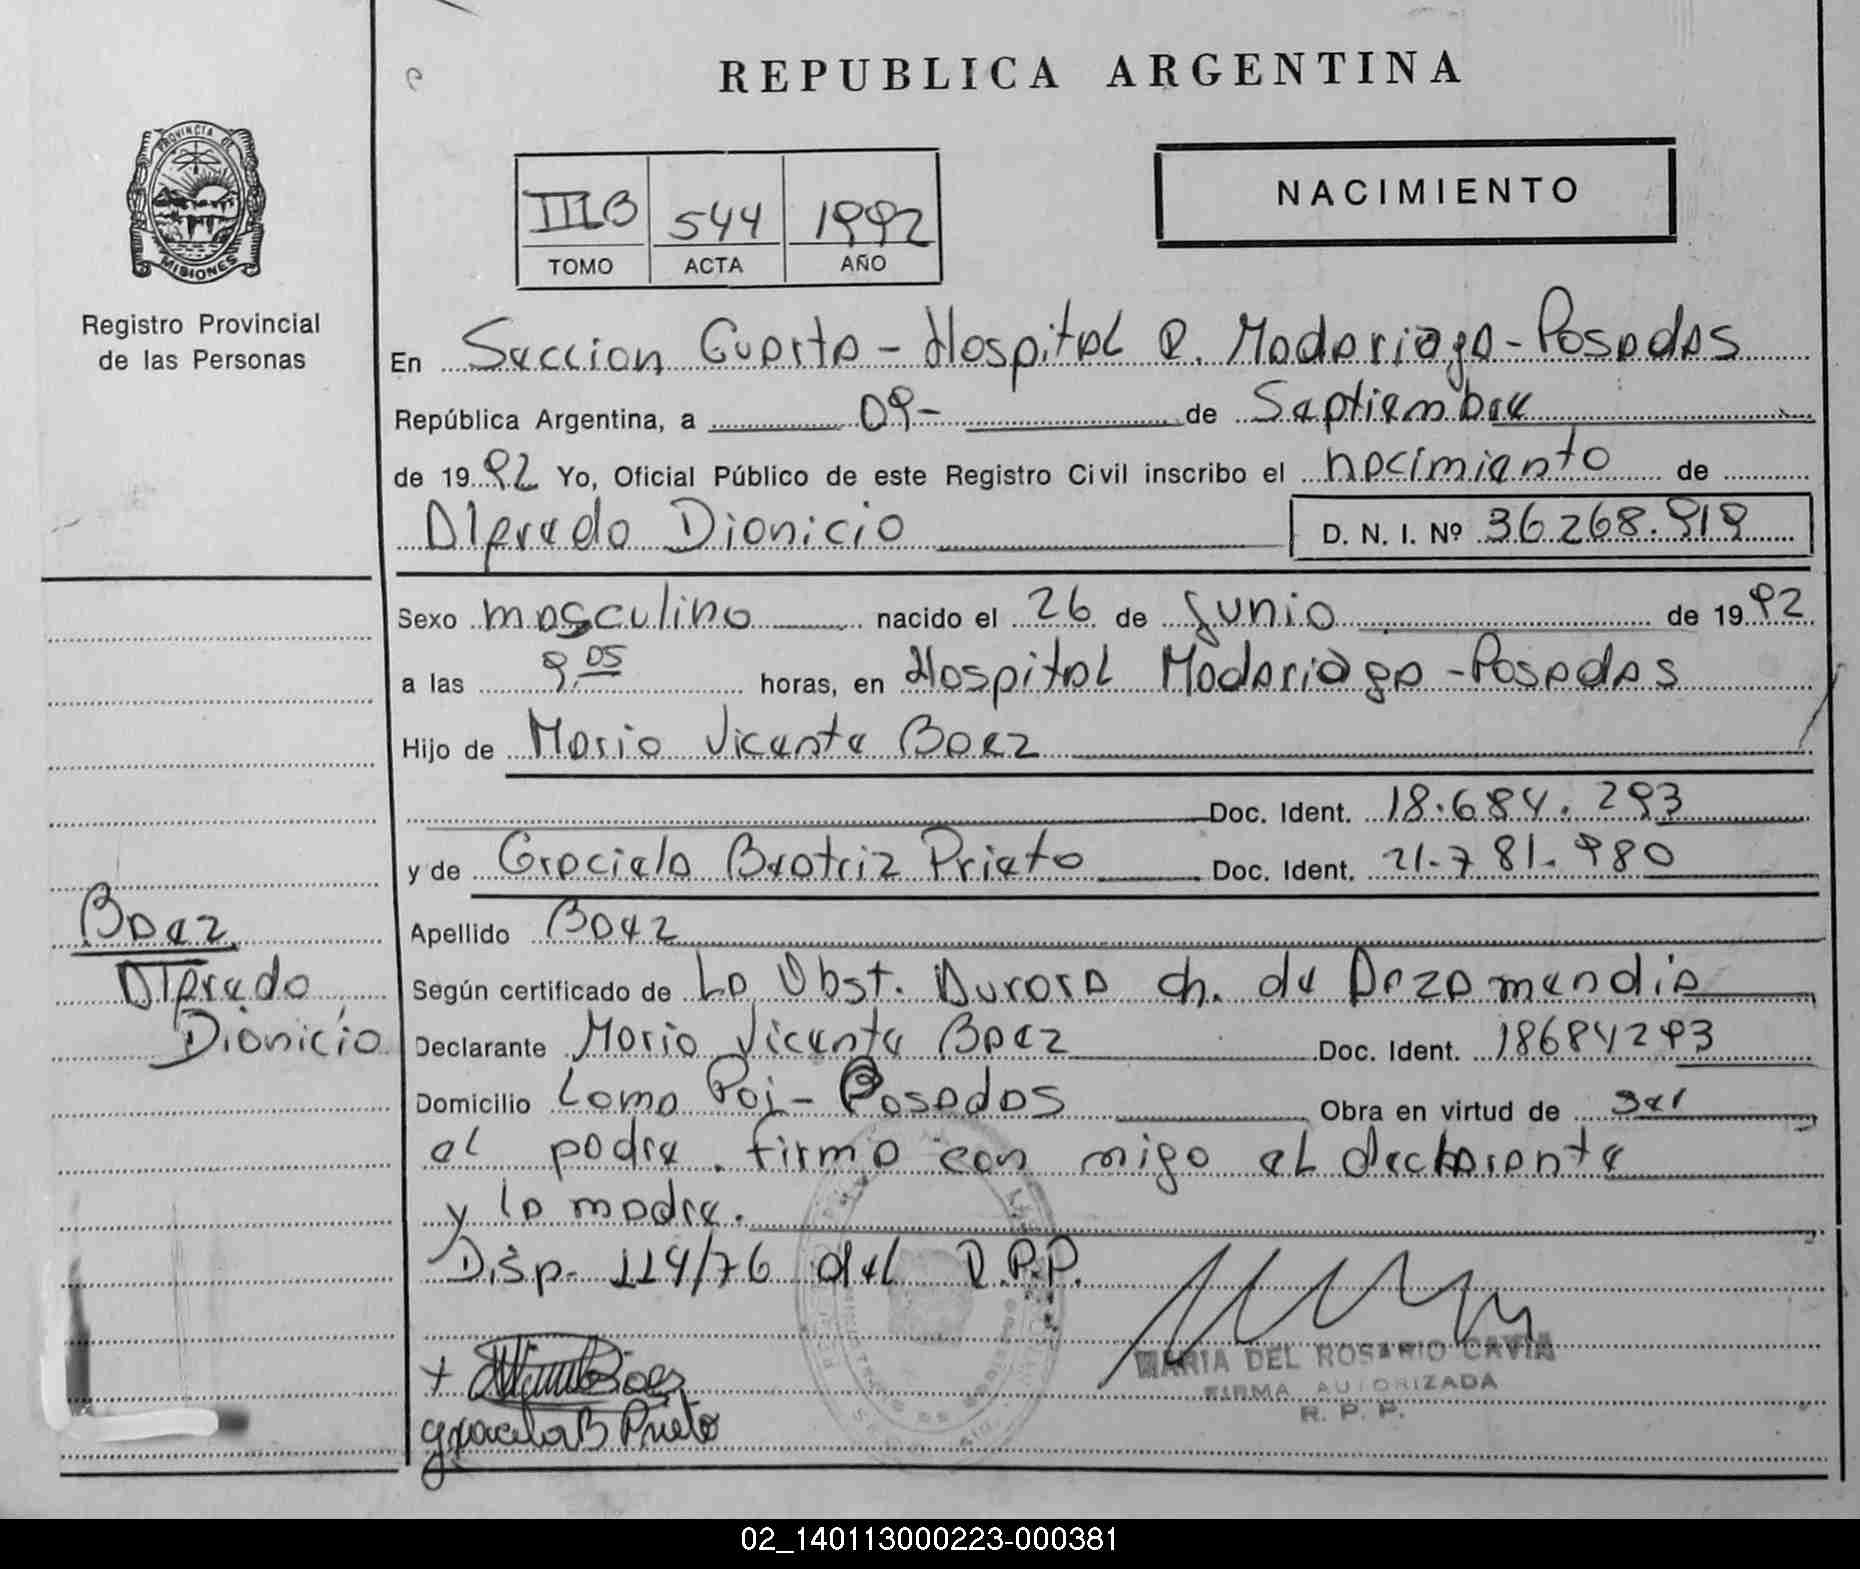 REPUBLICA ARGENTINA
PROVINCIA DE
MISIONES
Registro Provincial
de las Personas
III B 544 1992
TOMO ACTA AÑO
NACIMIENTO
En Seccion Cuarta - Hospital R. Madariaga - Posadas
República Argentina, a 09- de Septiembre
de 1992 Yo, Oficial Público de este Registro Civil inscribo el nacimiento de
Alfredo Dionicio D. N. I. Nº 36.268.919
Sexo masculino nacido el 26 de Junio de 1992
a las 9,05 horas, en Hospital Madariaga - Posadas
Hijo de Mario Vicente Baez
Doc. Ident. 18.684.293
y de Graciela Beatriz Prieto Doc. Ident. 21.781.980
Apellido Baez
Baez
Según certificado de La Obst. Aurora ch. de Arzamendia
Alfredo
Declarante Mario Vicente Baez Doc. Ident. 18684293
Dionicio
Domicilio Loma Poi - Posadas Obra en virtud de ser
el padre. firma con migo el declarante
y la madre.
Disp. 114/76 del R.P.P.
MARIA DEL ROSARIO CAVIA
FIRMA AUTORIZADA
R. P. P.
Graciela B Prieto
02_140113000223-000381